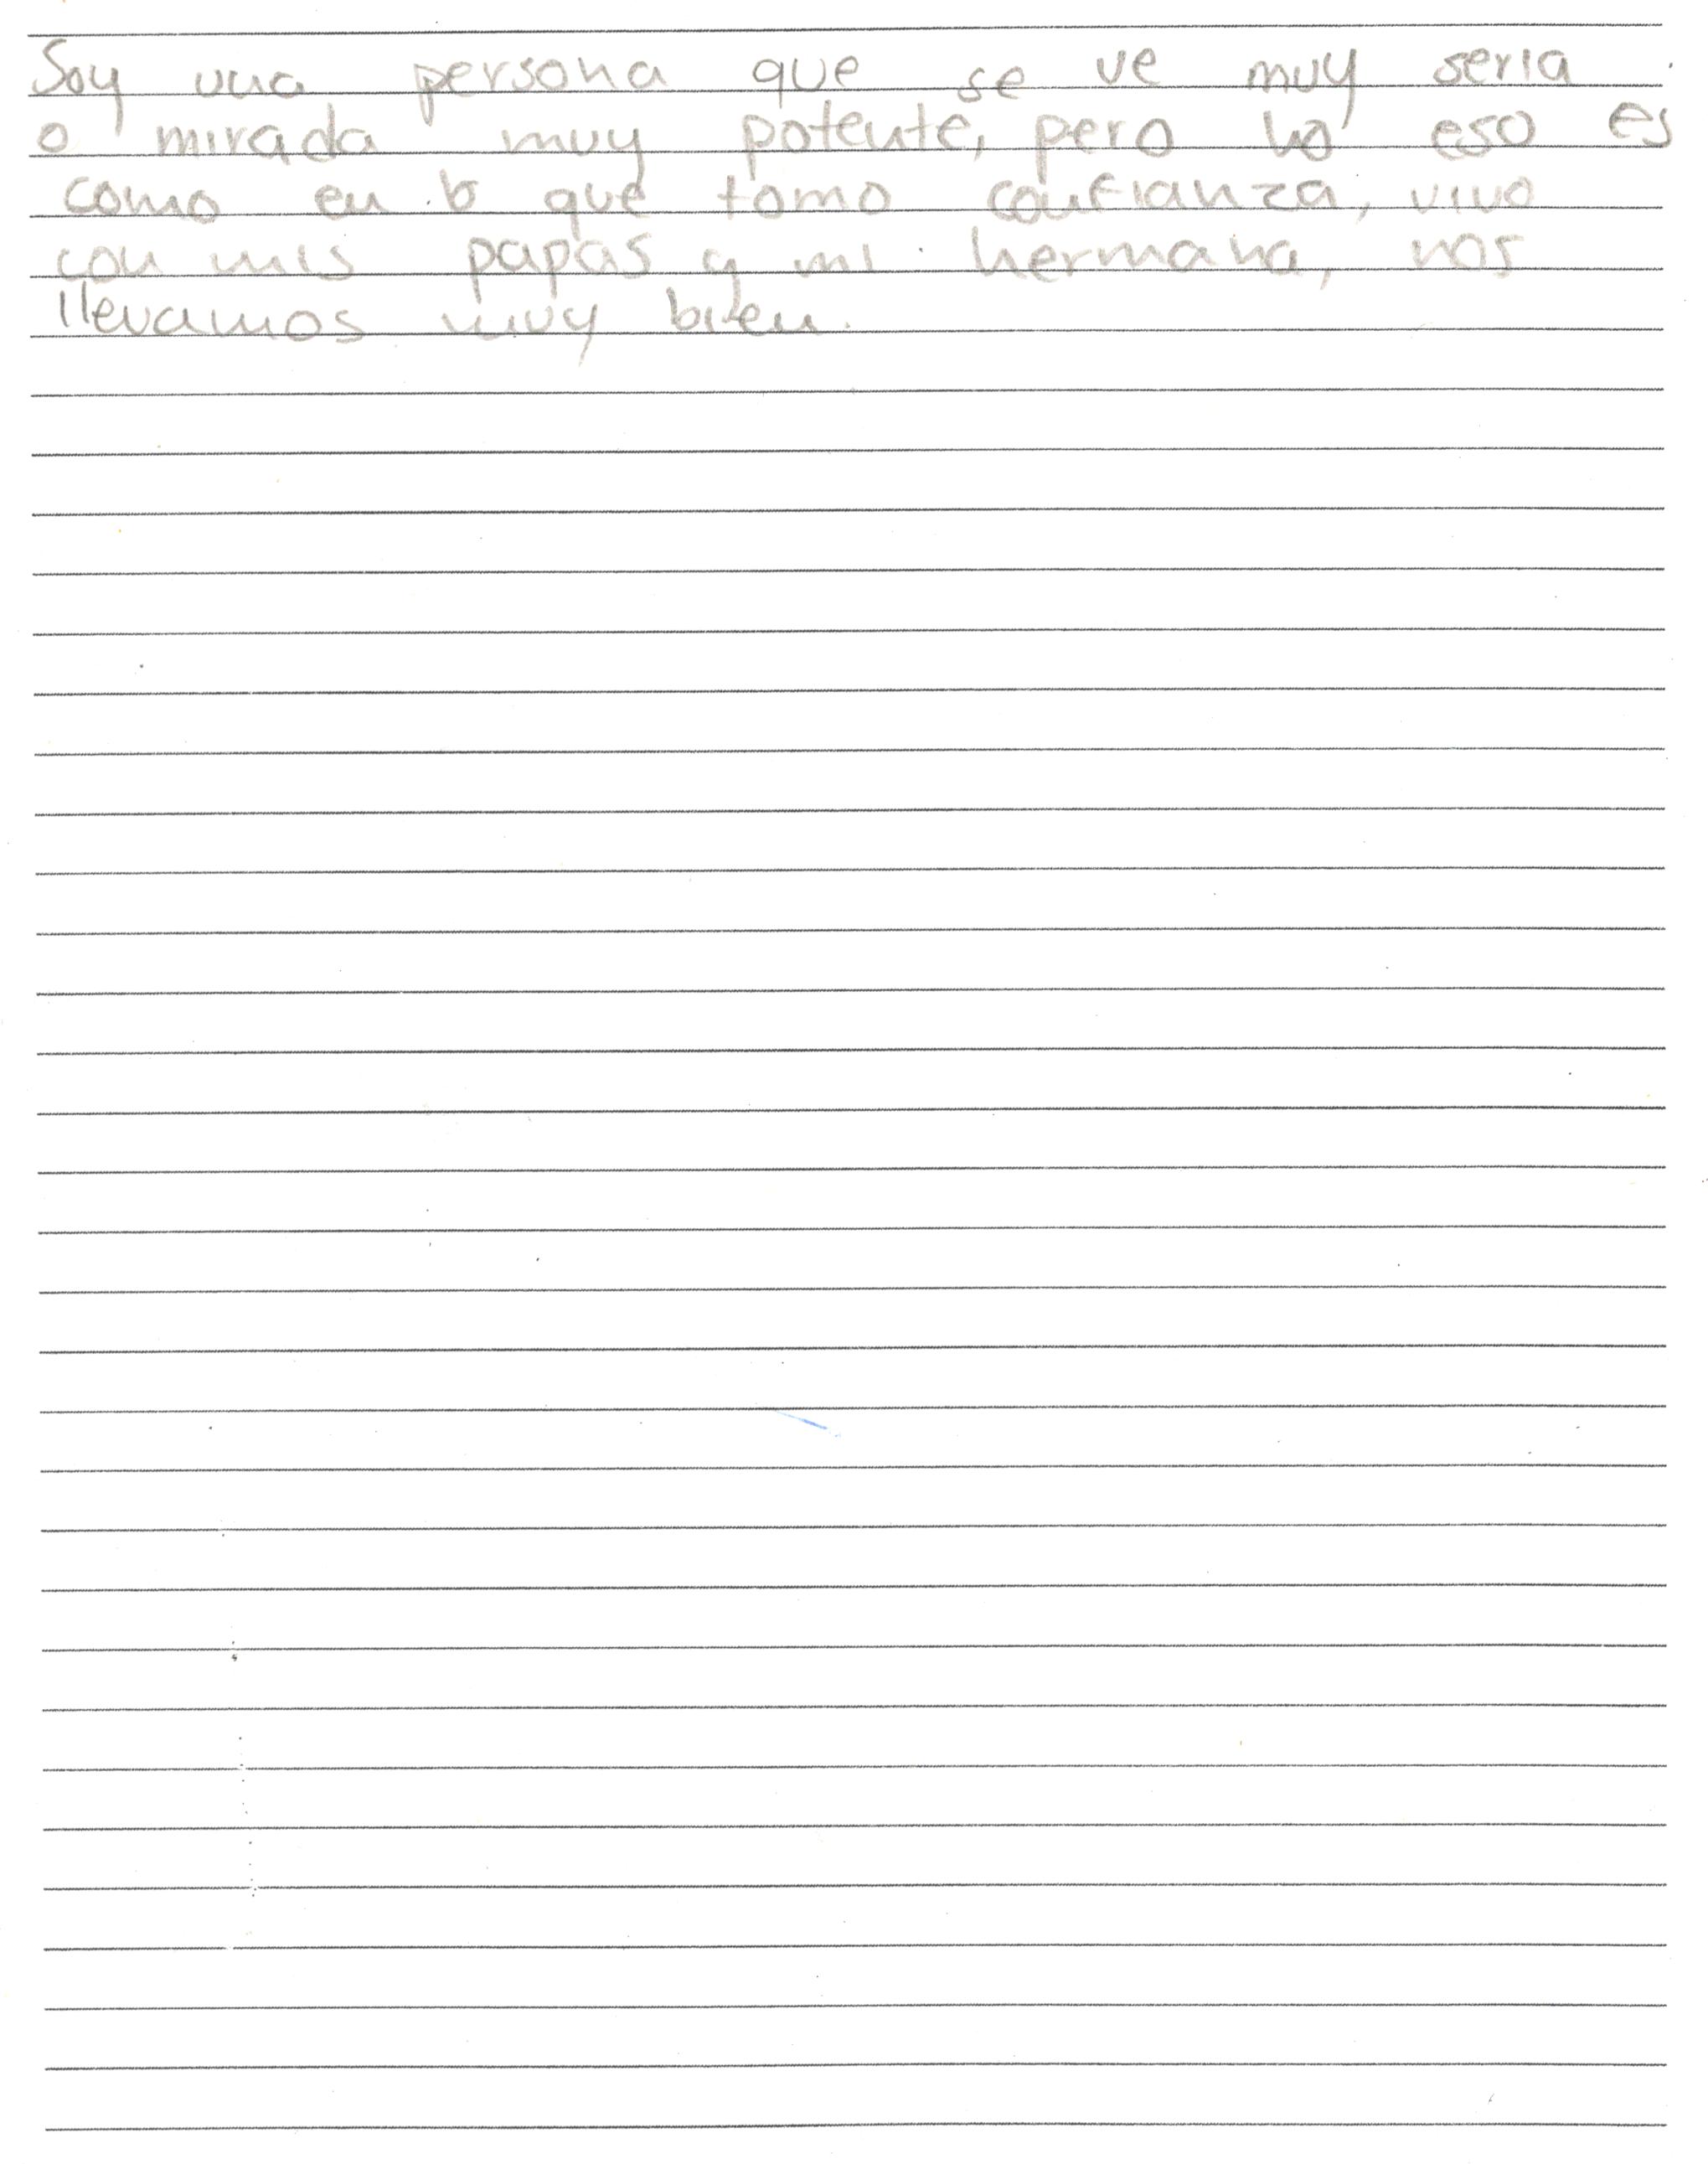 Soy una persona que se ve muy seria
o mirada muy potente, pero no eso es
como en lo que tomo confianza, vivo
con mis papas y mi hermana, nos
llevamos muy bien.